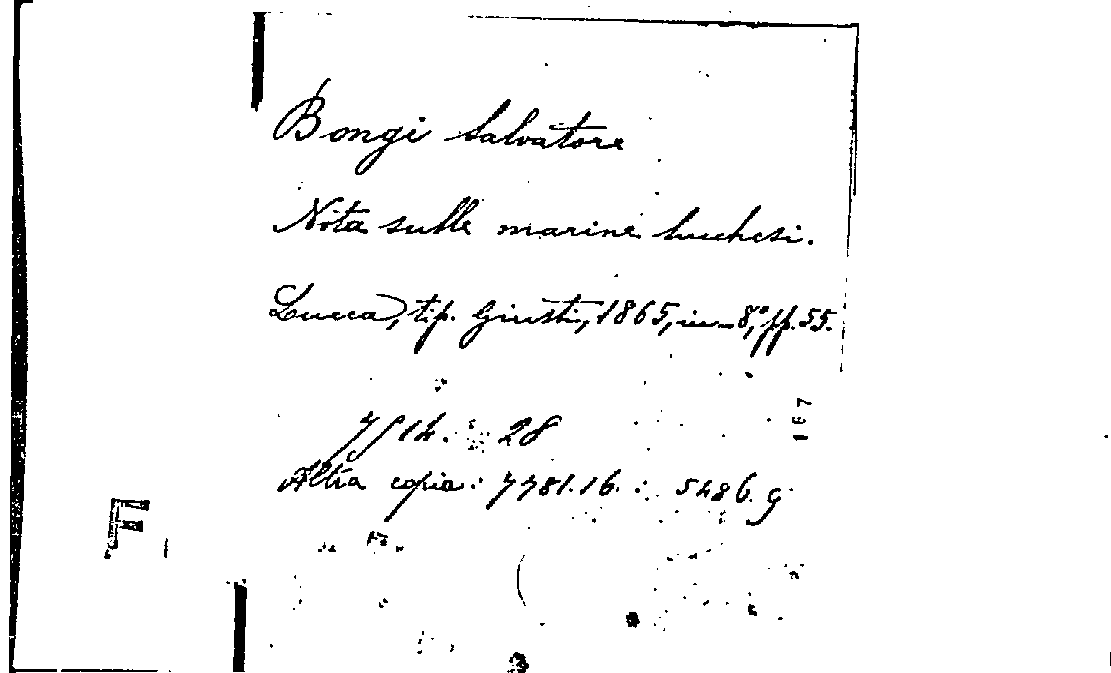 Bongi Salvatore
Nota sulle marine lucchesi.
Lucca, tip. Giusti, 1865, in-8°, pp. 55.
28
Altra copia: 7781.16. : 5486. g
F